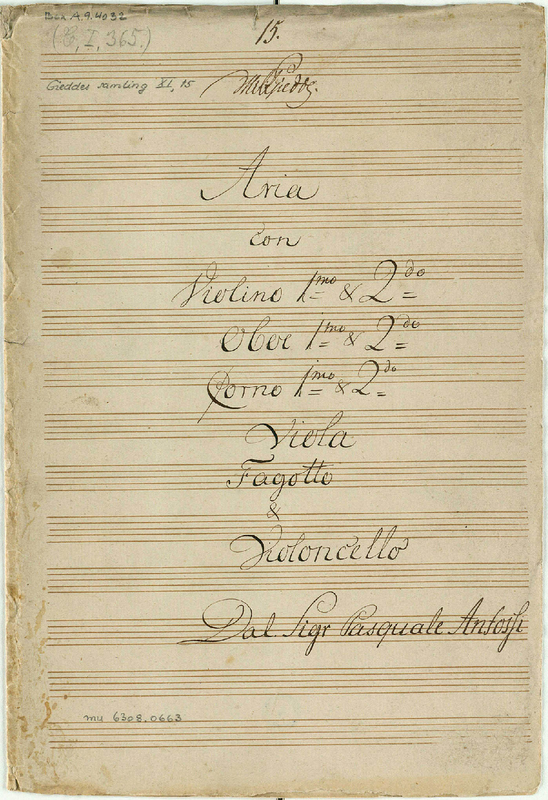 Box A.9.4032
(C, I, 365.)
15.
Gieddes samling XI, 15
Aria
con
Violino 1mo & 2do
Oboe 1mo & 2do
Corno 1mo & 2do
Viola
Fagotto
&
Violoncello
Dal Sigr Pasquale Anfossi
mu 6308.0663